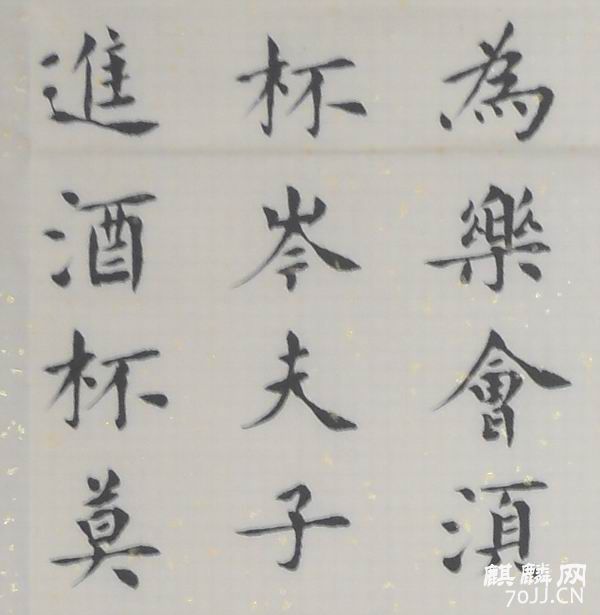 為樂會湏
杯岑夫子
進酒杯莫
麒麟网
70JJ.CN